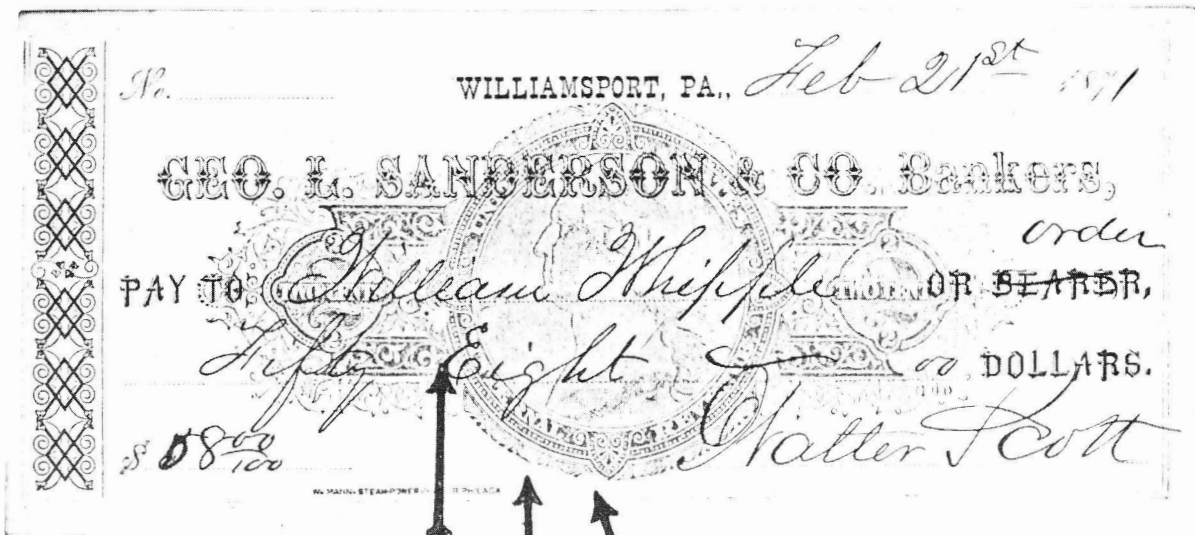 No. WILLIAMSPORT, PA., Feb 21st 1871
GEO. L. SANDERSON & CO. Bankers,
order
PAY TO William Whipple OR BEARER,
Fifty Eight 00 DOLLARS.
100
$ 58 00/100 Walter Scott
WM MANN STEAM-POWER PHILADA